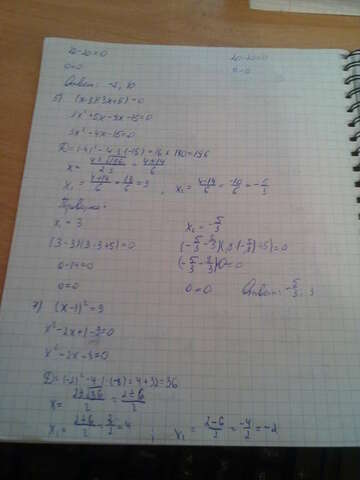 20-20=0 20-20=0
0=0 0=0
Ответ: -2, 10
5) (x-3)(3x+5)=0
3x²+5x-9x-15=0
3x²-4x-15=0
D=(-4)²-4·3·(-15)=16+180=196
x=(4±√196)/(2·3)=(4±14)/6
x₁=(4+14)/6=18/6=3, x₂=(4-14)/6=-10/6=-5/3
Проверка:
x₁=3 x₂=-5/3
(3-3)(3·3+5)=0 (-5/3-3)(3·(-5/3)+5)=0
0·14=0 0=0
0=0 0=0 Ответ: -5/3, 3
7) (x-1)²=9
x²-2x+1-9=0
x²-2x-8=0
D=(-2)²-4·1·(-8)=4+32=36
x=(2±√36)/2=(2±6)/2
x₁=(2+6)/2=8/2=4; x₂=(2-6)/2=-4/2=-2